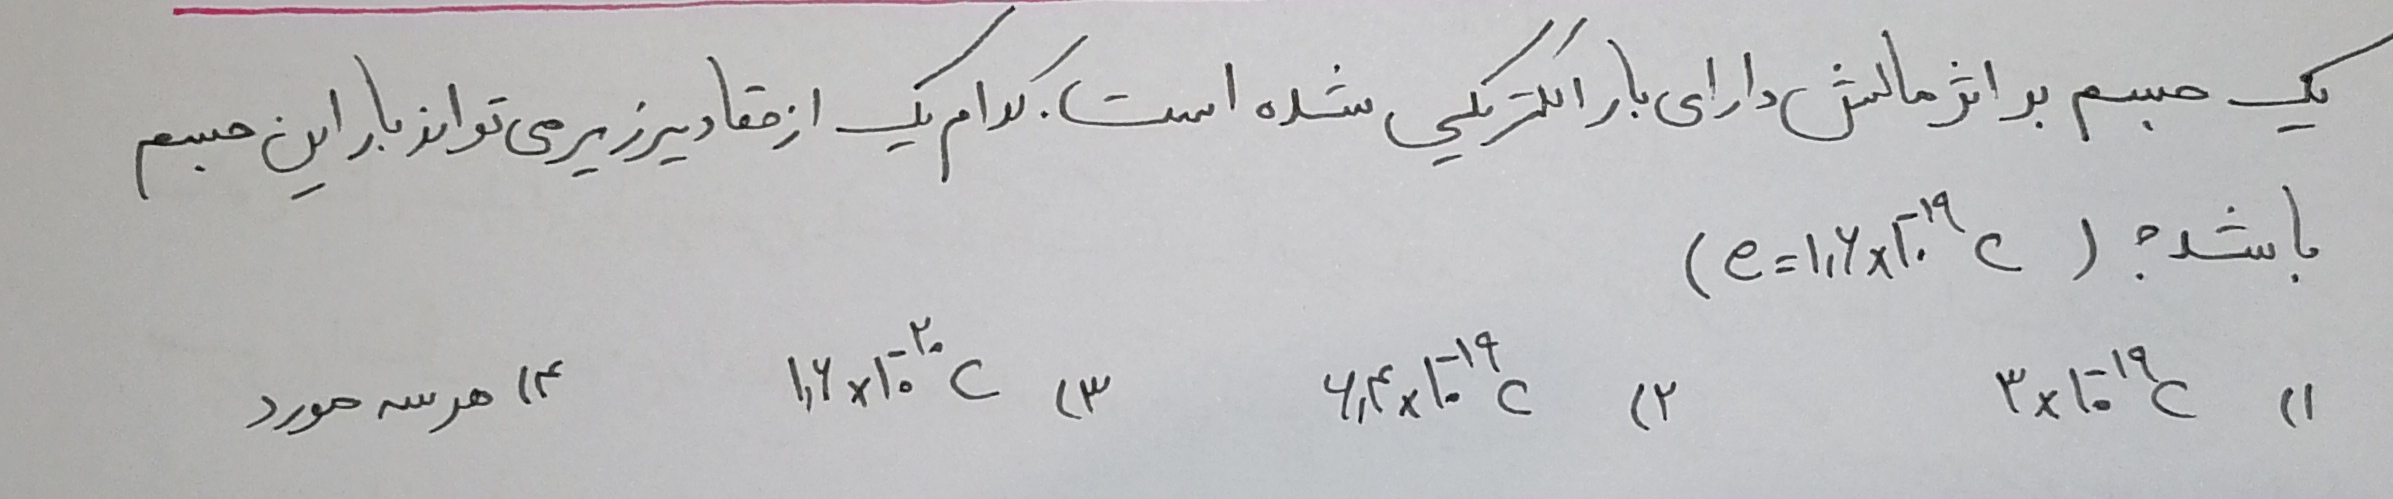 یک جسم بر اثر مالش دارای بار الکتریکی شده است. کدام یک از مقادیر زیر می تواند بار این جسم
باشد؟ (e=۱٫۶×۱۰^-۱۹ C)
۱) ۳×۱۰^-۱۹ C ۲) ۶٫۴×۱۰^-۱۹ C ۳) ۱٫۶×۱۰^-۲۰ C ۴) هر سه مورد